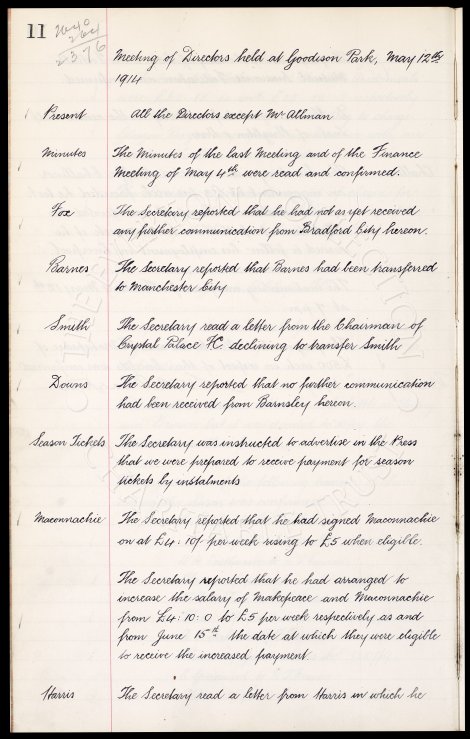 11
2640
264
2376
Meeting of Directors held at Goodison Park, May 12th
1914
Present All the Directors except Mr Allman
Minutes The Minutes of the last Meeting and of the Finance
Meeting of May 4th were read and confirmed.
Fox The Secretary reported that he had not as yet received
any further communication from Bradford City hereon.
Barnes The Secretary reported that Barnes had been transferred
to Manchester City
Smith The Secretary read a letter from the Chairman of
Crystal Palace FC declining to transfer Smith
Downs The Secretary reported that no further communication
had been received from Barnsley hereon.
Season Tickets The Secretary was instructed to advertise in the Press
that we were prepared to receive payment for season
tickets by instalments
Maconnachie The Secretary reported that he had signed Maconnachie
on at £4:10/ per week rising to £5 when eligible.
The Secretary reported that he had arranged to
increase the salary of Makepeace and Maconnachie
from £4:10:0 to £5 per week respectively as and
from June 15th the date at which they were eligible
to receive the increased payment
Harris The Secretary read a letter from Harris in which he